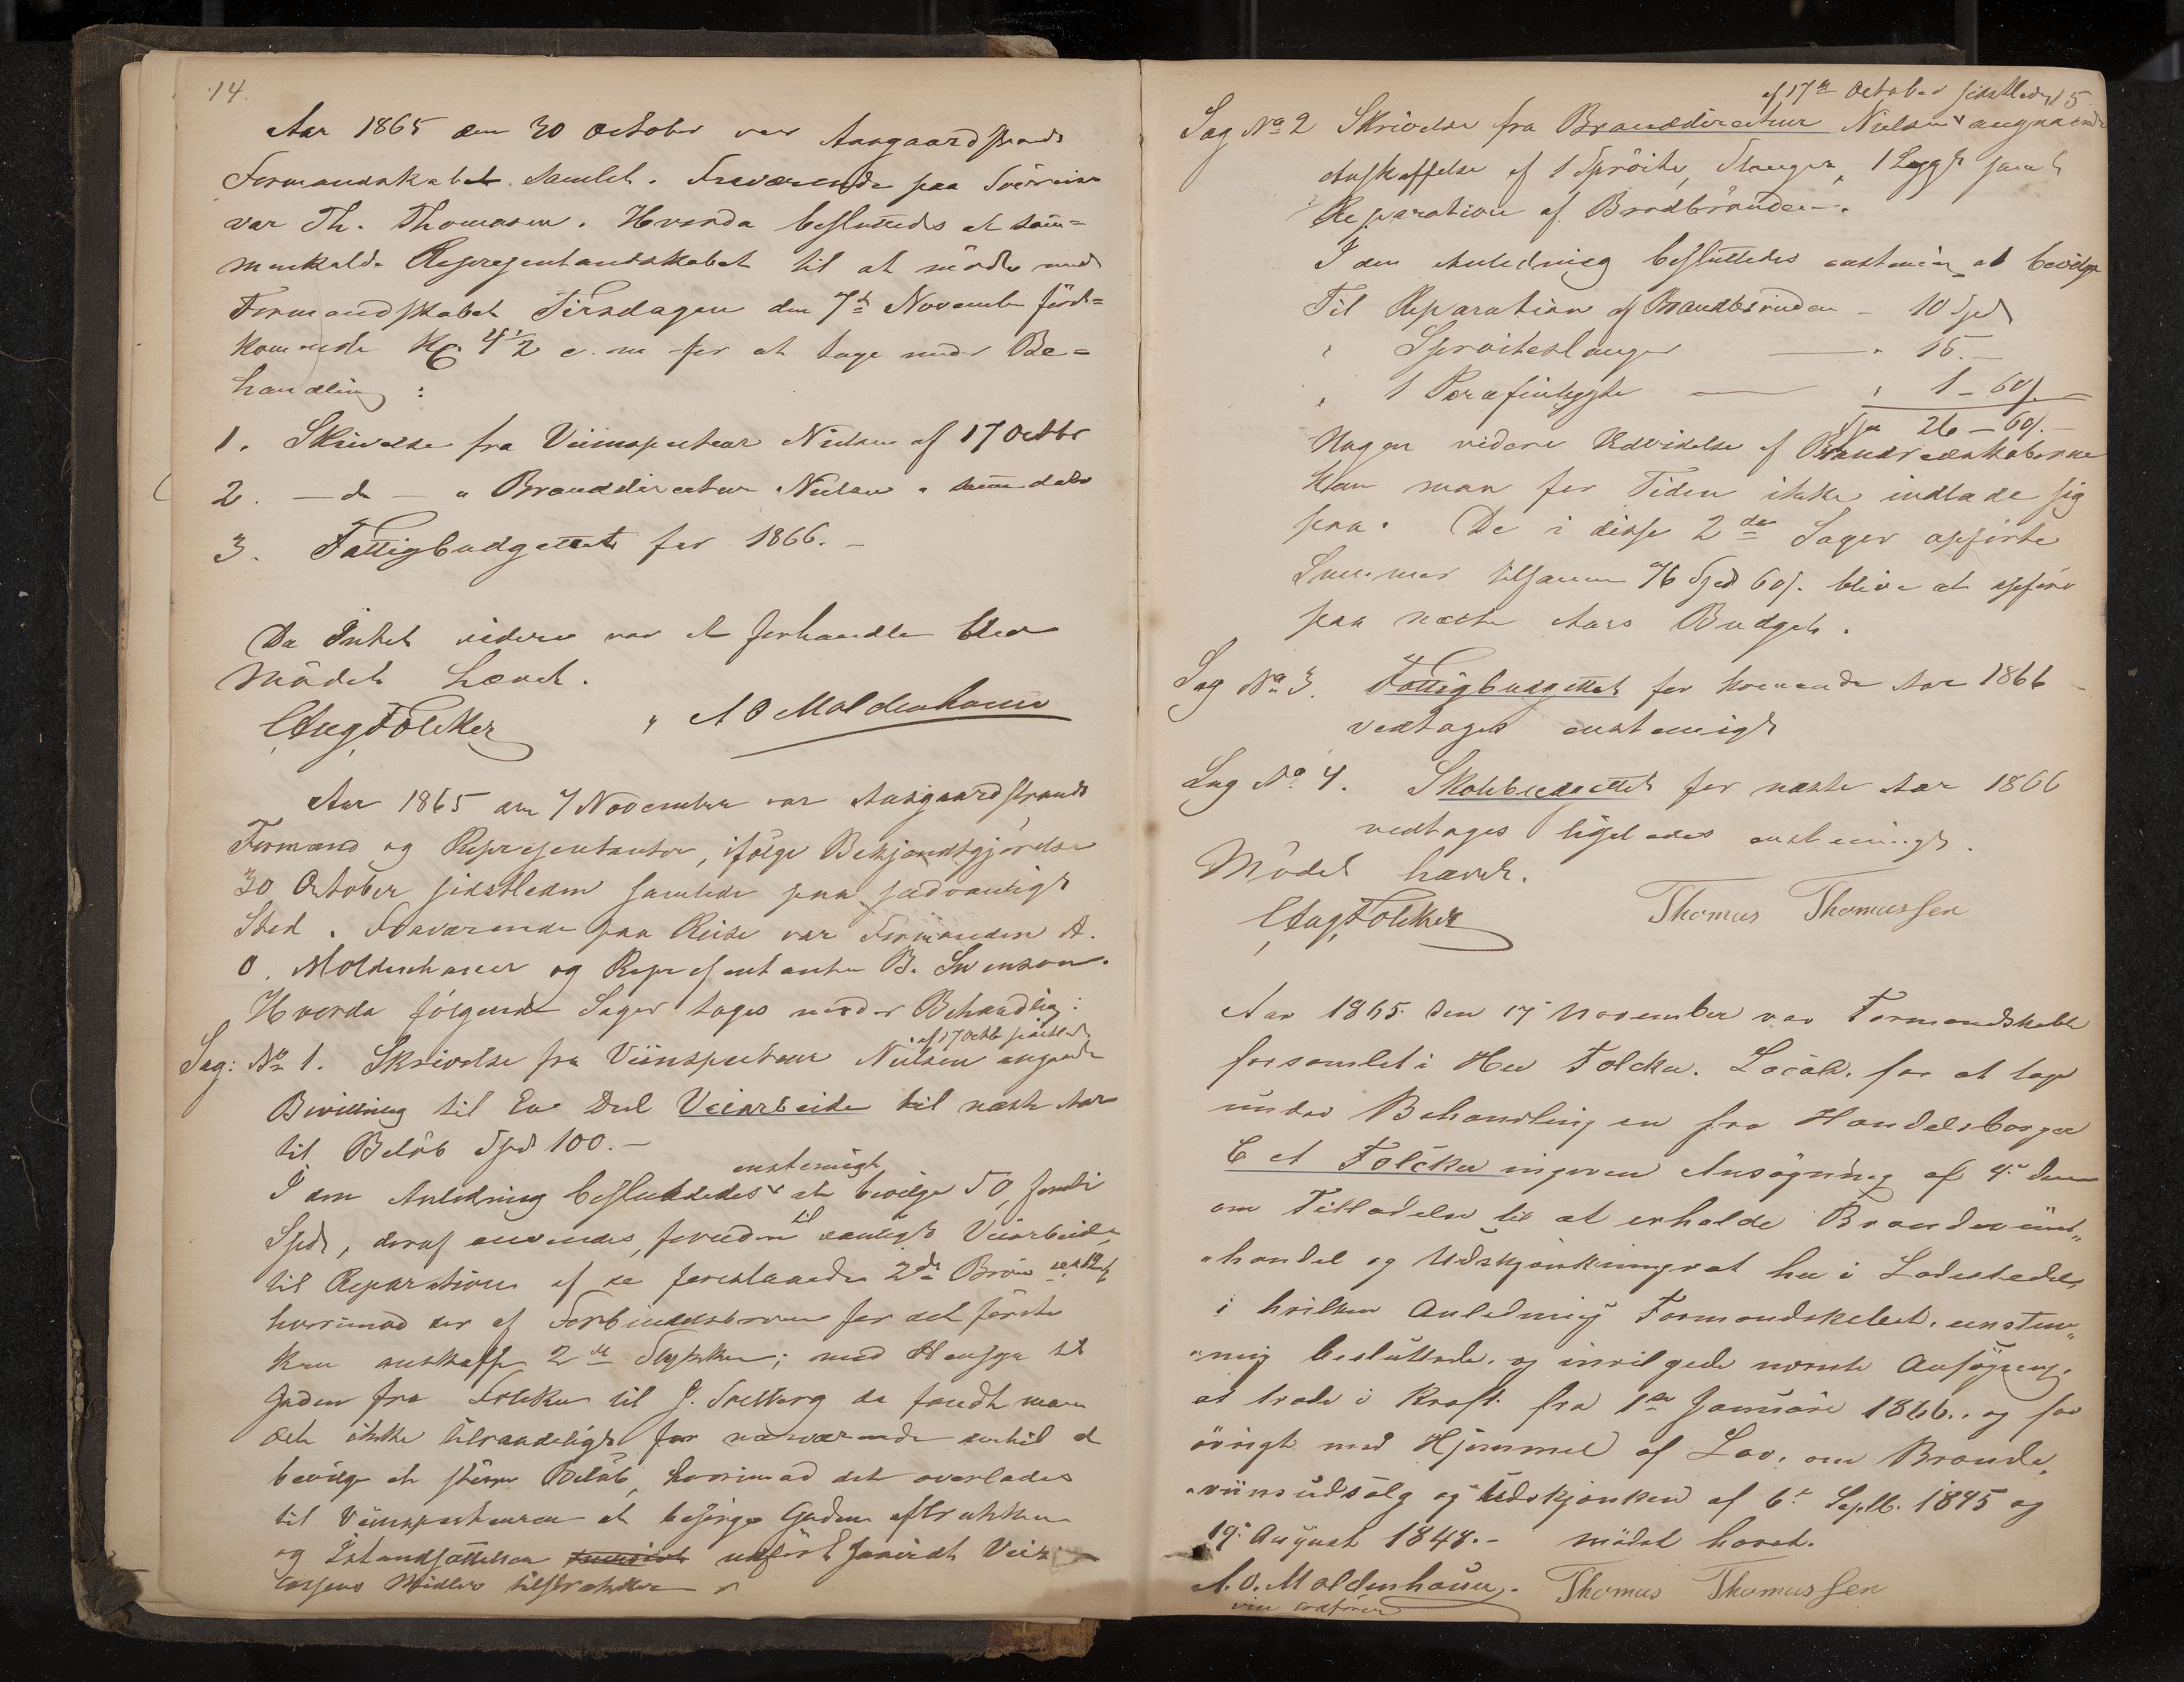 14.
Aar 1865 den 30 October var Aasgaardstrands
Formandskabet samlet. Fraværende paa Söereise
var Th. Thomasen. Hvorda besluttedes at sam=
menkalde Repræsentandskabet til at möde med
Formandskabet Tirsdagen den 7de November först=
kommende Kl. 4½ e.m for at tage under Be=
handling:
1. Skrivelse fra Veiinspecteur Nielsen af 17 Octbr
2. — do — " Branddirecteur Nielsen " samme dato
3. Fattigbudgettet for 1866. —
Da Intet videre var at forhandle blev
Mödet hævet.
C Aug Fölcker " A O Moldenhauer
Aar 1865 den 7 November var Aasgaardstrands
Formænd og Repræsentanter, ifölge Bekjendtgjörelse
30 October sidstleden samlede paa sædvanligt
Sted. Fraværende paa Reise var Formanden A.
O. Moldenhauer og Repræsentanten B. Svensen.
Hvorda fölgende Sager toges under Behandlig:
af 17 Octb sidstled
Sag: No 1. Skrivelse fra Veiinspecteur Nielsen angaaende
Bevillning til En Deel Veiarbeide til næste Aar
til Belöb Spd 100.—
enstemigt
I den Anledning besluttedes at bevilge 50, femti
Spd, deraf anvendes, foruden til vanligt Veiarbeide,
til Reparation af de foreslaaede 2de Bröer
hvorimod der af Forbindelsbroer for det förste
kun anskaffes 2de Stykker; med Hensyn til
Gaden fra Fölcker til J. Solberg da fandt man
det ikke tilraadeligt for nærværende dertil at
bevilge et större Belöb, hvorimod det overlades
til Veiinspecteuren at besörge Gadens
og Istandsættelsen udfört forsavidt Vei-
cassens Midler tilstrækker
af 17de October sidstleden 15
Sag No 2 Skrivelse fra Branddirecteur Nielsen angaaende
Anskaffelse af 1 Spröite, Slanger, 1 Lygte samt
Reparation af Brandbrönden.
I den Anledning besluttedes enstemig at bevilge
Til Reparation af Brandbrönden — 10 Spd
" Spröiteslanger — " 15.—
" 1 Parafinlygte — " 1 – 60 s.
Spd 26 – 60 s.
Nogen videre Udvidelse af Brandredskaberne
kan man for Tiden ikke indlade sig
paa. De i disse 2de Sager opförte
Summer tilsammen 76 Spd 60 s. blive at opföre
paa næste Aars Budget.
Sag No 3. Fattigbudgettet for kommende Aar 1866
vedtages enstemigt
Sag No 4. Skolebudgettet for næste Aar 1866
vedtages ligeledes enstemigt.
Mödet hævet.
C Aug Fölcker Thomas Thomassen
Aar 1865 den 17 November var Formandskabet
forsamlet i Herr Fölcker. Locale. for at tage
under Behandling en fra Handelsborger
C A Fölcker ingiven Ansögning af 4de dennes
om Tilladelse til at erholde Brændeviins„
„handel og Udskjænkningsret her i Ladestedet,
i hvilken Anledning Formandskabet. eenstem„
„mig besluttede. og invilgede nævnte Ansögning.
at træde i Kraft. fra 1ste Januari 1866.. og for
övrigt med Hjemmel af Lov. om Brænde„
„viinsudsalg og Udskjænken af 6te Septb. 1845 og
19de August 1848.— mödet hævet.
A. O. Moldenhauer. Thomas Thomassen
vice ordförer